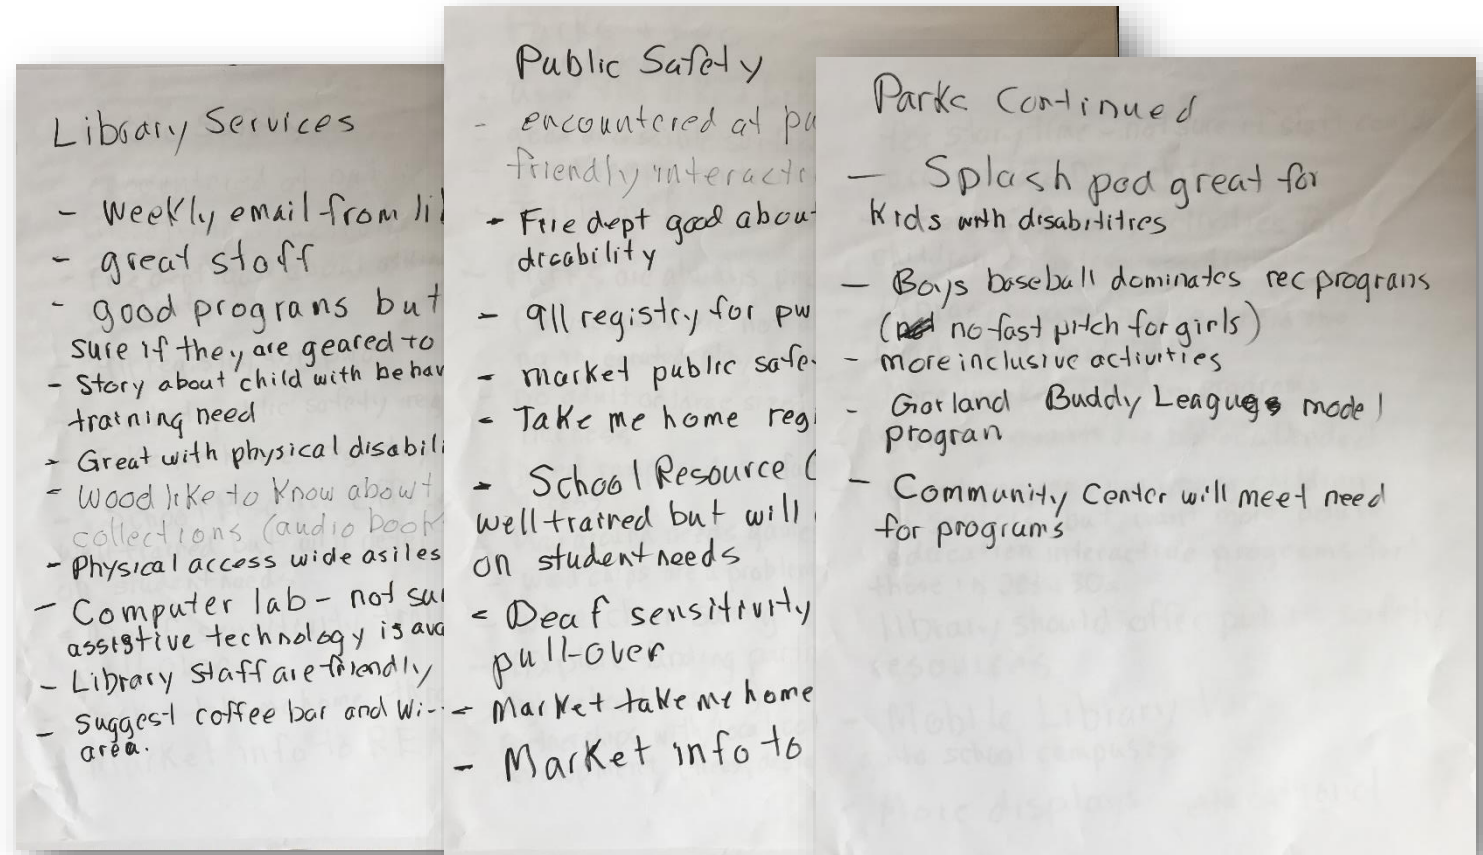 Library Services
- Weekly email from li
- great staff
- good programs but
sure if they are geared to
- Story about child with behav
training need
- Great with physical disabili
- Wood like to know about
collections (audio book
- Physical access wide asiles
- Computer lab - not su
assistive technology is ava
- Library Staff are friendly
- suggest coffee bar and Wi-
area.
Public Safety
- encountered at pu
friendly interacti
- Fire dept good about
disability
- 911 registry for pw
- market public safe
- Take me home regi
- School Resource O
well trained but will
on student needs
- Deaf sensitivity
pull-over
- Market take me home
- Market info to
Parks Continued
- Splash pad great for
kids with disabilitres
- Boys baseball dominates rec programs
(no fast pitch for girls)
- more inclusive activities
- Garland Buddy Leagues model
program
- Community Center will meet need
for programs